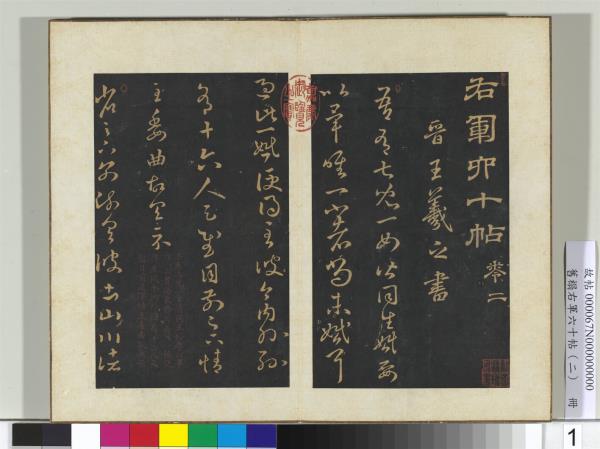 右軍六十帖 卷二
晉王羲之書
吾有七兒一女皆同生婚娶
以畢唯一小者尚未婚耳
過此一婚便得至彼今內外孫
有十六人足慰目前足下情
至委曲故具示
省足下別疏具彼土山川諸
嘉慶御覽之寶
故帖 000067N000000000
舊搨右軍六十帖(二) 冊
1